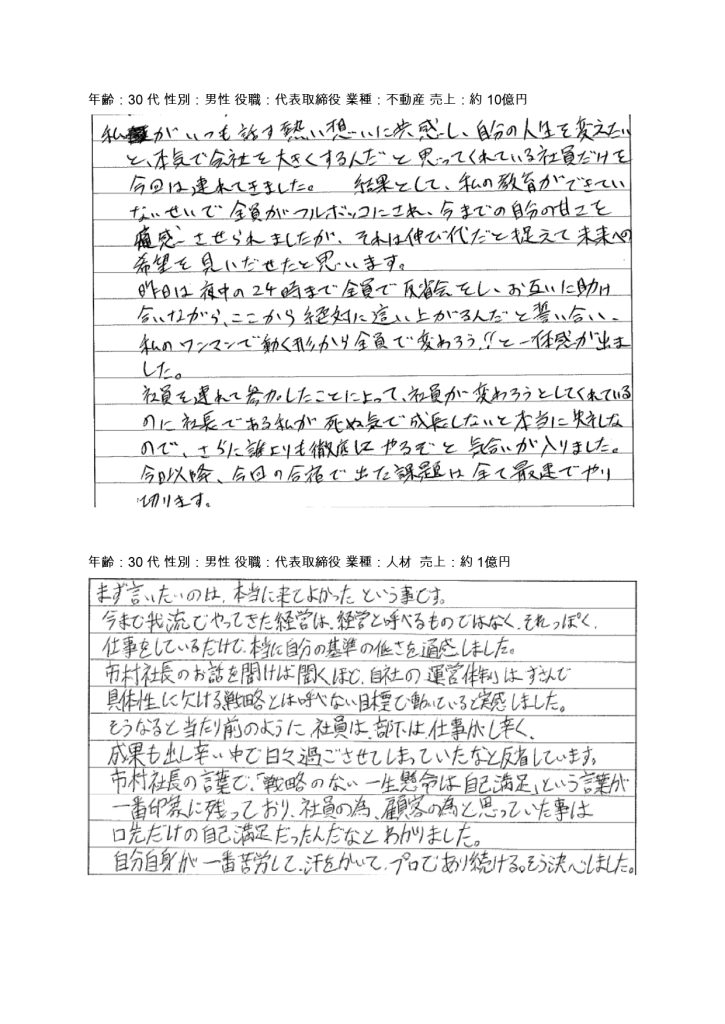 年齢：30 代 性別：男性 役職：代表取締役 業種：不動産 売上：約 10億円
私がいつも話す熱い想いに共感し、自分の人生を変えたい
と、本気で会社を大きくするんだと思ってくれている社員だけを
今回は連れてきました。 結果として、私の教育ができてい
ないせいで全員がフルボッコにされ、今までの自分の甘さを
痛感させられましたが、それは伸び代だと捉えて未来への
希望を見いだせたと思います。
昨日は夜中の24時まで全員で反省会をし、お互いに助け
合いながら、ここから絶対に這い上がるんだと誓い合い、
私のワンマンで動く形から全員で変わろう!!と一体感が出ま
した。
社員を連れて参加したことによって、社員が変わろうとしてくれている
のに社長である私が死ぬ気で成長しないと本当に失礼な
ので、さらに誰よりも徹底してやるぞと気合いが入りました。
今日以降、今回の合宿で出た課題は全て最速でやり
切ります。
年齢：30 代 性別：男性 役職：代表取締役 業種：人材 売上：約 1億円
まず言いたいのは、本当に来てよかったという事です。
今まで我流でやってきた経営は、経営と呼べるものではなく、それっぽく、
仕事をしているだけで、本当に自分の基準の低さを痛感しました。
市村社長のお話を聞けば聞くほど、自社の運営体制はずさんで
具体性に欠ける戦略とは呼べない目標で動いていると実感しました。
そうなると当たり前のように、社員は、部下は、仕事がし辛く、
成果も出し辛い中で日々過ごさせてしまっていたなと反省しています。
市村社長の言葉で、「戦略のない一生懸命は自己満足」という言葉が
一番印象に残っており、社員の為、顧客の為と思っていた事は
口先だけの自己満足だったんだなとわかりました。
自分自身が一番苦労して、汗をかいて、プロであり続ける。そう決心しました。